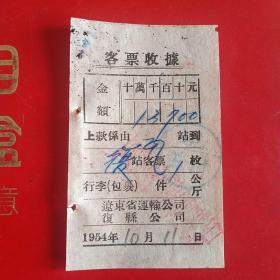 客票收據
金額 十萬千百十元
13900
上款係由 站到
復瓦
站客票 1 枚
行李(包裹) 件 公斤
遼東省運輸公司
復縣公司
1954年10月11日